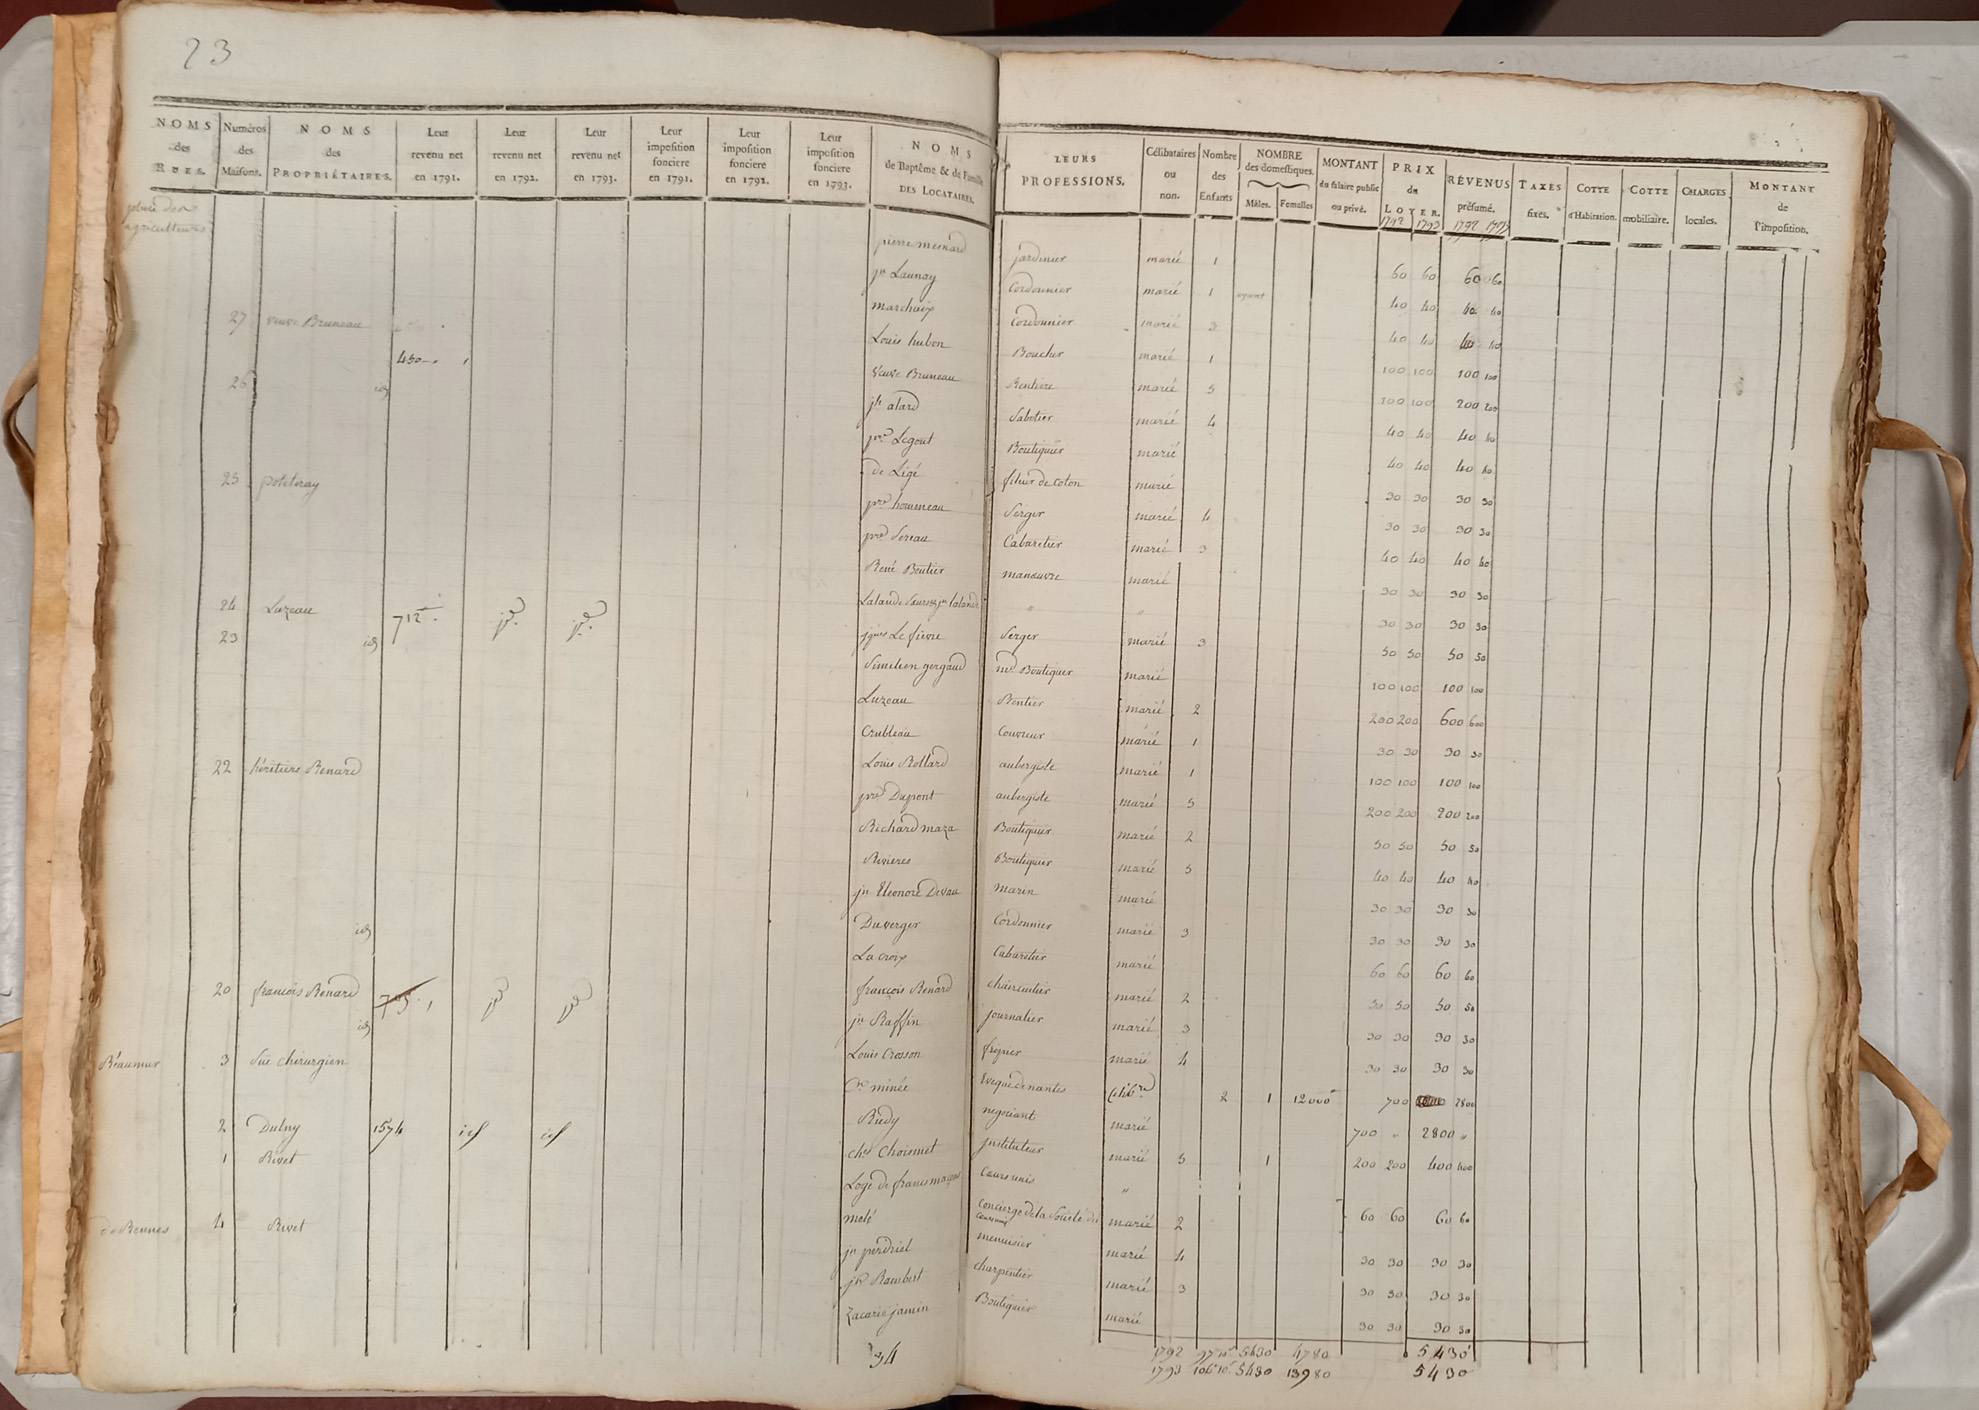 23
NOMS des RUES. Numéros des Maisons. NOMS des PROPRIÉTAIRES. Leur revenu net en 1791. Leur revenu net en 1792. Leur revenu net en 1793. Leur imposition fonciere en 1791. Leur imposition fonciere en 1792. Leur imposition fonciere en 1793. NOMS de Baptême & de Famille DES LOCATAIRES. LEURS PROFESSIONS. Célibataires ou non. Nombre des Enfants NOMBRE des domestiques. Mâles. Femelles MONTANT du salaire public ou privé. PRIX du LOYER. 1792 1793 RÉVENUS présumé. 1792 1793 TAXES fixes. COTTE d'Habitation. COTTE mobiliaire. CHARGES locales. MONTANT de l'imposition.
place des agriculteurs
pierre mesnard jardinier marié 1 60 60 60 60
jn Launay Cordonnier marié 1 40 40 40 40
27 veuve Bruneau marchaix Cordonnier marié 3 40 40 40 40
450 Louis hubon Boucher marié 1 100 100 100 100
26 id veuve Bruneau Rentiere marié 5 100 100 200 200
jh alard Sabotier marié 4 40 40 40 40
pre Legout Boutiquier marié 40 40 40 40
25 potiteray de Ligé fileur de Coton marié 30 30 30 30
pre houmeau Serger marié 4 30 30 30 30
pre Sereau Cabaretier marié 3 40 40 40 40
René Boutier manoeuvre marié 30 30 30 30
24 Luzeau 712 id id Lalande Soeurs & jn lalande " " 30 30 30 30
23 id jques Le fievre Serger marié 3 50 50 50 50
Similien gergaud md Boutiquier marié 100 100 100 100
Luzeau Rentier marié 2 200 200 600 600
Crubleau Couvreur marié 1 30 30 30 30
22 héritiers Renard Louis Rollard aubergiste marié 1 100 100 100 100
pre Dupont aubergiste marié 5 200 200 200 200
Richard maza Boutiquier marié 2 50 50 50 50
Rivieres Boutiquier marié 5 40 40 40 40
jn Eleonore Devau Marin marié 30 30 30 30
id Duverger Cordonnier marié 3 30 30 30 30
La croix Cabaretier marié 60 60 60 60
20 françois Renard 705 id id françois Renard chaircutier marié 2 50 50 50 50
id jn Raffin journalier marié 3 30 30 30 30
Réaumur 3 Sue chirurgien Louis Crosson fripier marié 4 30 30 30 30
minée Eveque de nantes Celibre 2 1 12000 700 2800
2 Dulny 1574 id id Rudy negociant marié 700 " 2800 "
1 Rivet chs Choismet jnstituteur marié 5 1 200 200 400 400
Loge de francs maçons Coeurs unis "
de Rennes 4 Rivet molé Concierge de la Societé des marié 2 60 60 60 60
jn perdriel menuisier marié 4 30 30 30 30
jn Rambert charpentier marié 3 30 30 30 30
Zacarie jamin Boutiquier marié 30 30 30 30
34 1792 97 10 5430 4780 5430
1793 106 10 5430 13980 5430